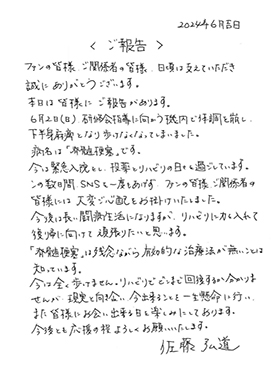 2024年6月吉日
< ご報告 >
ファンの皆様、ご関係者の皆様、日頃は支えていただき
誠にありがとうございます。
本日は皆様にご報告があります。
6月2日(日)、研修会指導に向かう機内で体調を崩し、
下半身麻痺となり歩けなくなってしまいました。
病名は「脊髄梗塞」です。
今は緊急入院とし、投薬とリハビリの日々を過ごしています。
この数日間、SNSも一度もあげず、ファンの皆様、ご関係者の
皆様には大変ご心配をお掛けいたしました。
今後は長い闘病生活になりますが、リハビリに力を入れて
復帰に向けて頑張りたいと思います。
「脊髄梗塞」は残念ながら効果的な治療法が無いことは
知っています。
今は全く歩けません。リハビリでどこまで回復するか分かりま
せんが、現実と向き合い、今出来ることを一生懸命に行い、
また皆様にお会い出来る日を楽しみにしております。
今後とも応援の程よろしくお願いいたします。
佐藤弘道